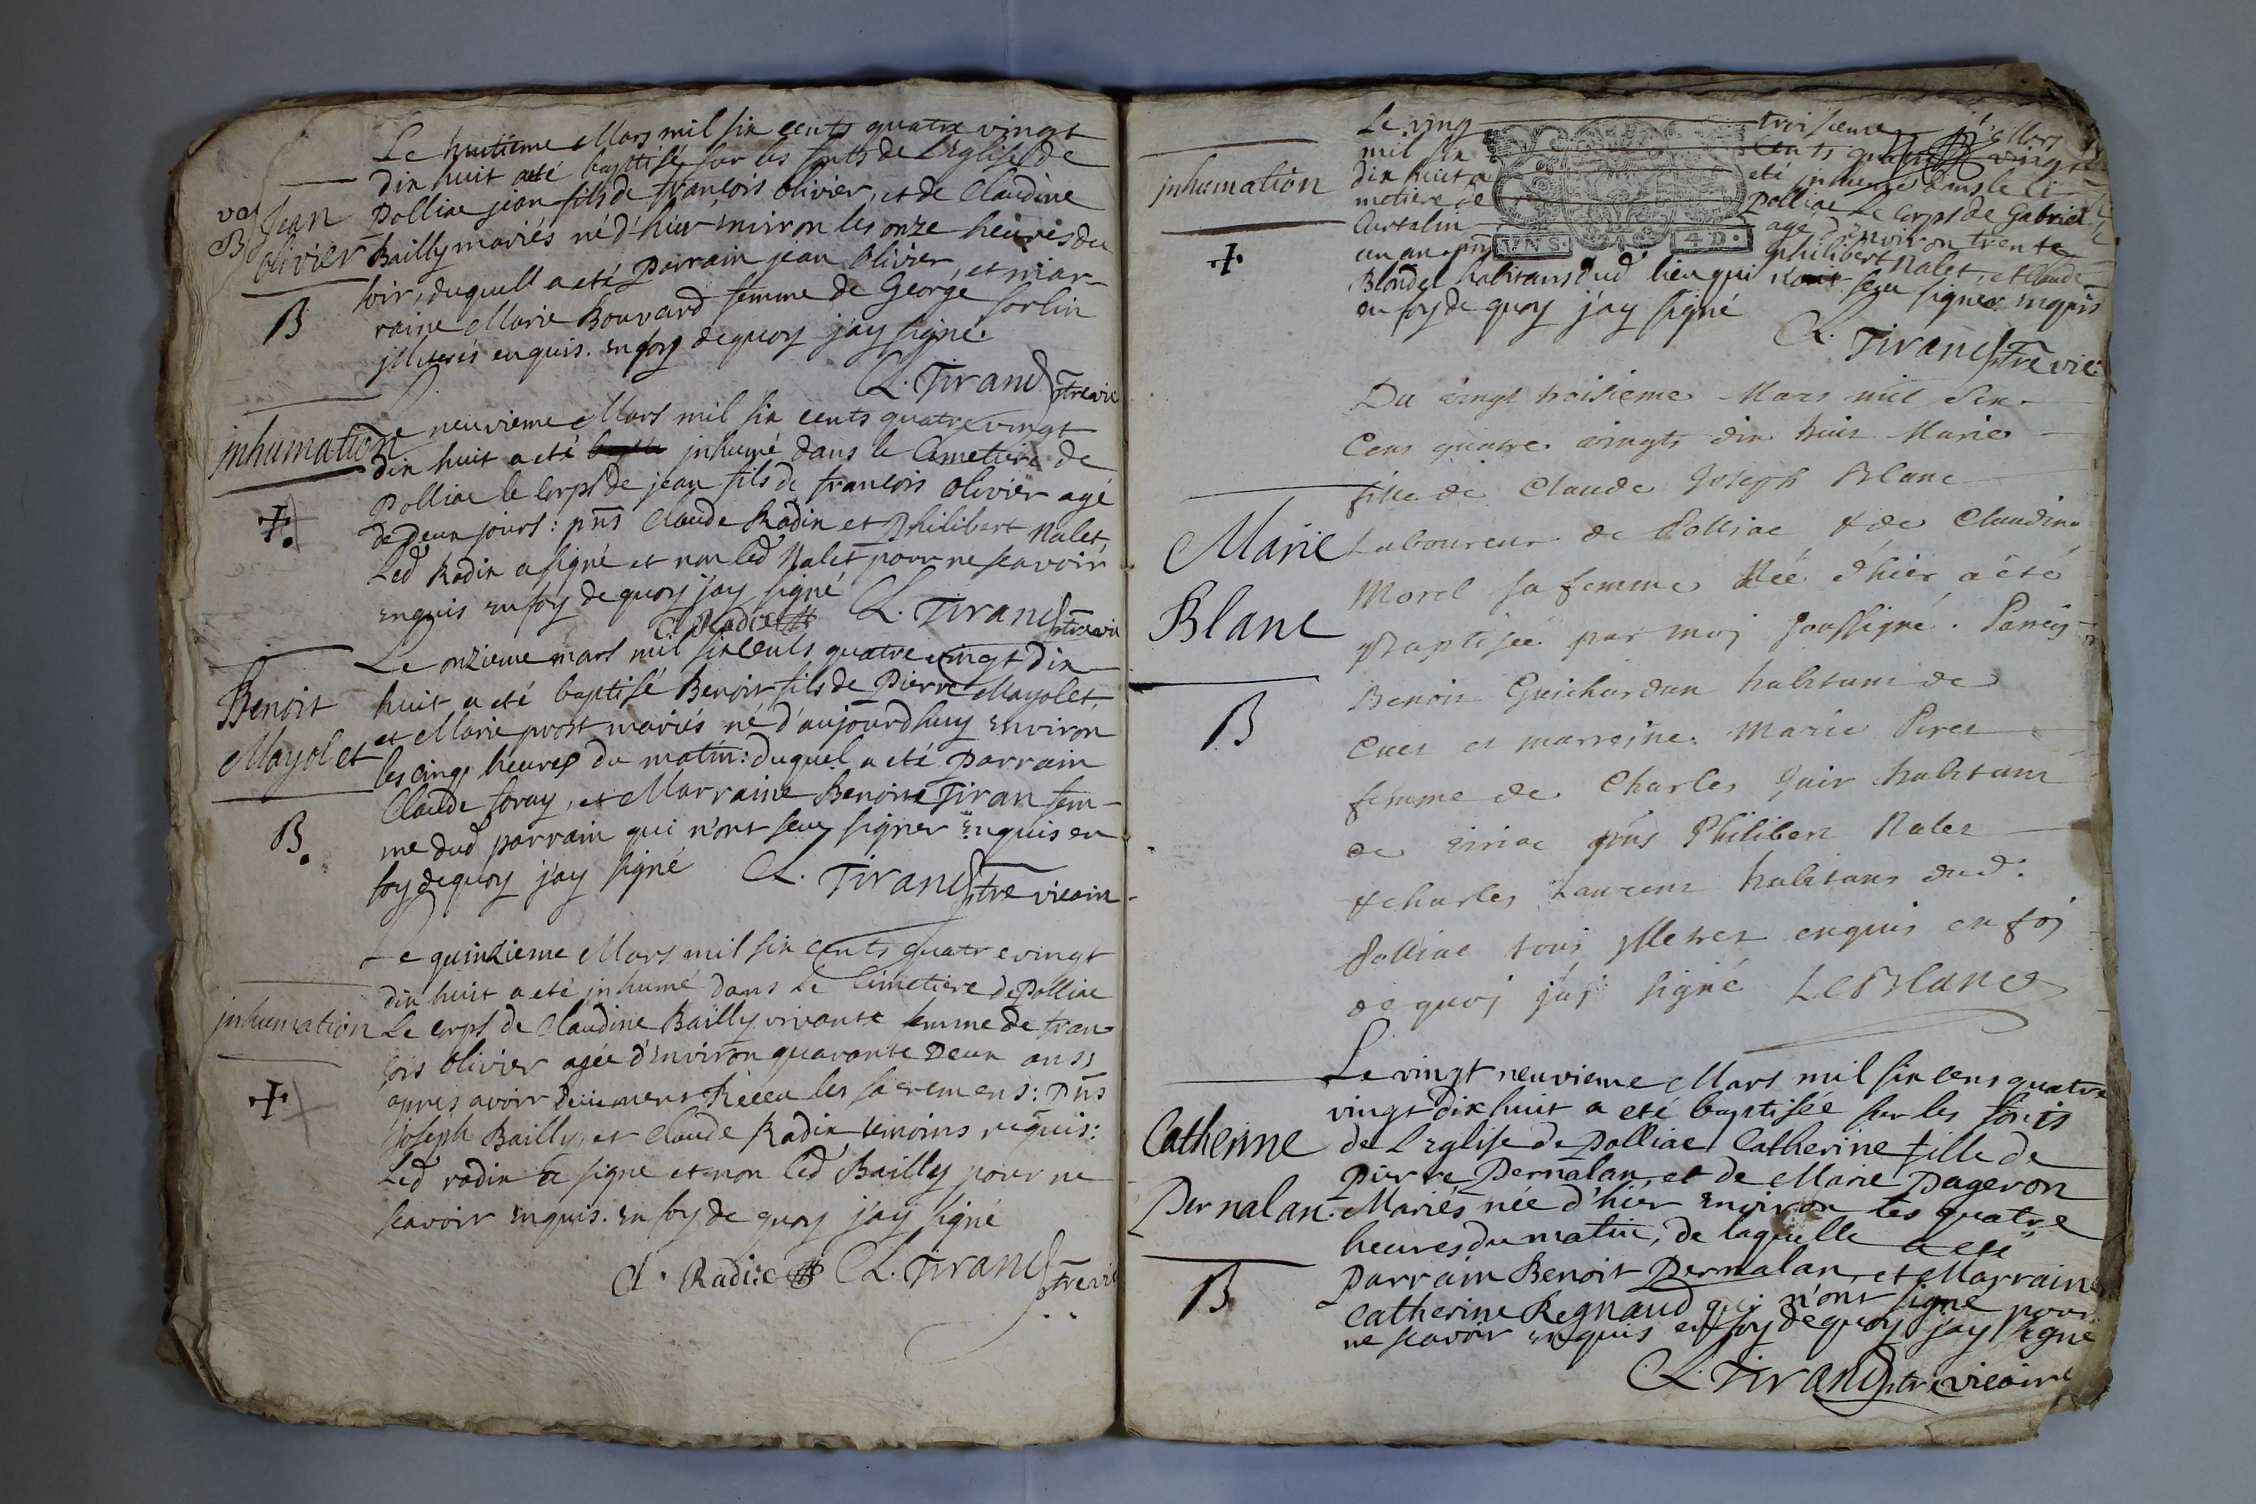 Le huitieme Mars mil six cents quatre vingt
dix huit a eté baptisé sur les fonts de L'Eglise de
Polliac jean fils de françois olivier, et de Claudine
Bailly mariés né d'hier environ les onze heures du
soir, duquel a eté Parrain jean olivier, et mar-
raine Marie Bouvard femme de George sorlin
jlliterés enquis. en foy de quoy j'ay signé.
L. Tirand ptre vic
Jean
olivier
B
Le neuvieme Mars mil six cents quatre vingt
dix huit a eté jnhumé dans le Cimetiere de
Polliac le corps de jean fils de francois olivier agé
de Deux jours: pñs Claude Radix et Philibert Nalet,
Led Radix a signé et non led Nalet pour ne scavoir
enquis en foy de quoy j'ay signé
Cl Radix L. Tirand ptre vic
jnhumation
Le onzieme mars mil six cents quatre vingt dix
huit a eté baptisé Benoit fils de Pierre Mayolet,
et Marie prost mariés né d'aujourdhuy environ
les cinq heures du matin: duquel a eté parrain
Claude foray, et Marraine Benoite Tiran fem-
me dud parrain qui n'ont sceu signer enquis en
foy de quoy j'ay signé L. Tirand ptre vicaire
Benoit
Mayolet
B.
Le quinzieme Mars mil six cents quatre vingt
dix huit a eté jnhumé dans Le Cimetiere de Polliac
Le corps de Claudine Bailly vivante femme de fran
çois olivier agée d'environ quarante Deux ans
apres avoir Duement Receu les sacremens: pñs
joseph Bailly, et Claude Radix temoins requis:
Led radix a signé et non led Bailly pour ne
scavoir enquis. en foy de quoy j'ay signé
Cl. Radix L. Tirand ptre vic
jnhumation
Le ving troisieme Mars
mil six cents quatre vingt
dix huit a eté jnhumé dans le Ci-
metiere de Polliac Le corps de Gabriel
agé d'environ trente
un an. pñs philibert Nalet, et Claude
Blondel habitans dud lieu qui n'ont sceu signer enquis
en foy de quoy j'ay signé
L. Tirand ptre vic.
jnhumation
4 D.
Du vingt troisieme Mars mil six
Cens quatre vingts dix huit Marie
fille de Claude Joseph Blanc
Laboureur de Polliac & de Claudine
Morel sa femme Née d'hier a été
Baptisée par moy soussigné. Parein
Benoit Guichardan habitant de
Cuet et marreine Marie Peret
femme de Charles habitant
de viriac pñs Philibert Nalet
& Charles Laurent habitans dud.
Polliac tous jlletrez enquis en foy
de quoy j'ay signé LeBlanc
Marie
Blanc
B
Le vingt neuvieme Mars mil six cens quatre
vingt dix huit a eté baptisée sur les fonts
de L'Eglise de Polliac Catherine fille de
Pierre Pernalan, et de Marie Pageron
Mariés née d'hier environ les quatre
heures du matin, de laquelle a eté
Parrain Benoit Pernalan, et Marraine
Catherine Regnaud qui n'ont signé pour
ne scavoir enquis en foy de quoy j'ay signé
L. Tirand ptre vicaire
Catherine
Pernalan.
B